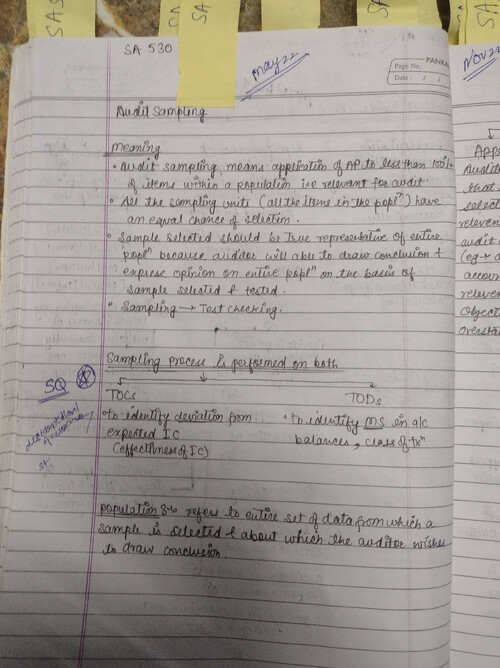 SA
SA
SA 530
May 22
Nov 22
Page No.:
PANKA
Date : / /
Audit Sampling
Meaning
• Audit sampling means application of AP to less than 100%
of items within a population i.e relevant for audit.
• All the sampling units (all the items in the poplⁿ) have
an equal chance of selection.
• Sample selected should be True representative of entire
poplⁿ because auditor will able to draw conclusion &
express opinion on entire poplⁿ on the basis of
sample selected & tested.
• Sampling → Test checking.
Sampling process is performed on both
SQ
TOCs
TODs
• to identify deviation from
expected IC
(effectiveness of IC)
• to identify MS in a/c
balances, class of txⁿ
population :- refers to entire set of data from which a
sample is selected & about which the auditor wishes
to draw conclusion.
Audito
that
select
releven
audit
accoun
releven
Object
oversta